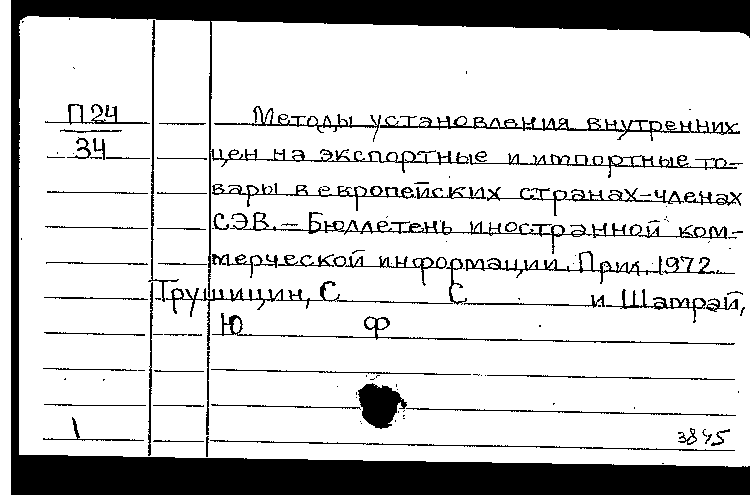 П24 Методы установления внутренних
34 цен на экспортные и импортные то-
вары в европейских странах-членах
СЭВ. – Бюллетень иностранной ком-
мерческой информации. Прил. 1972.
Трушицин, С С и Шатрай,
Ю Ф
1 3845